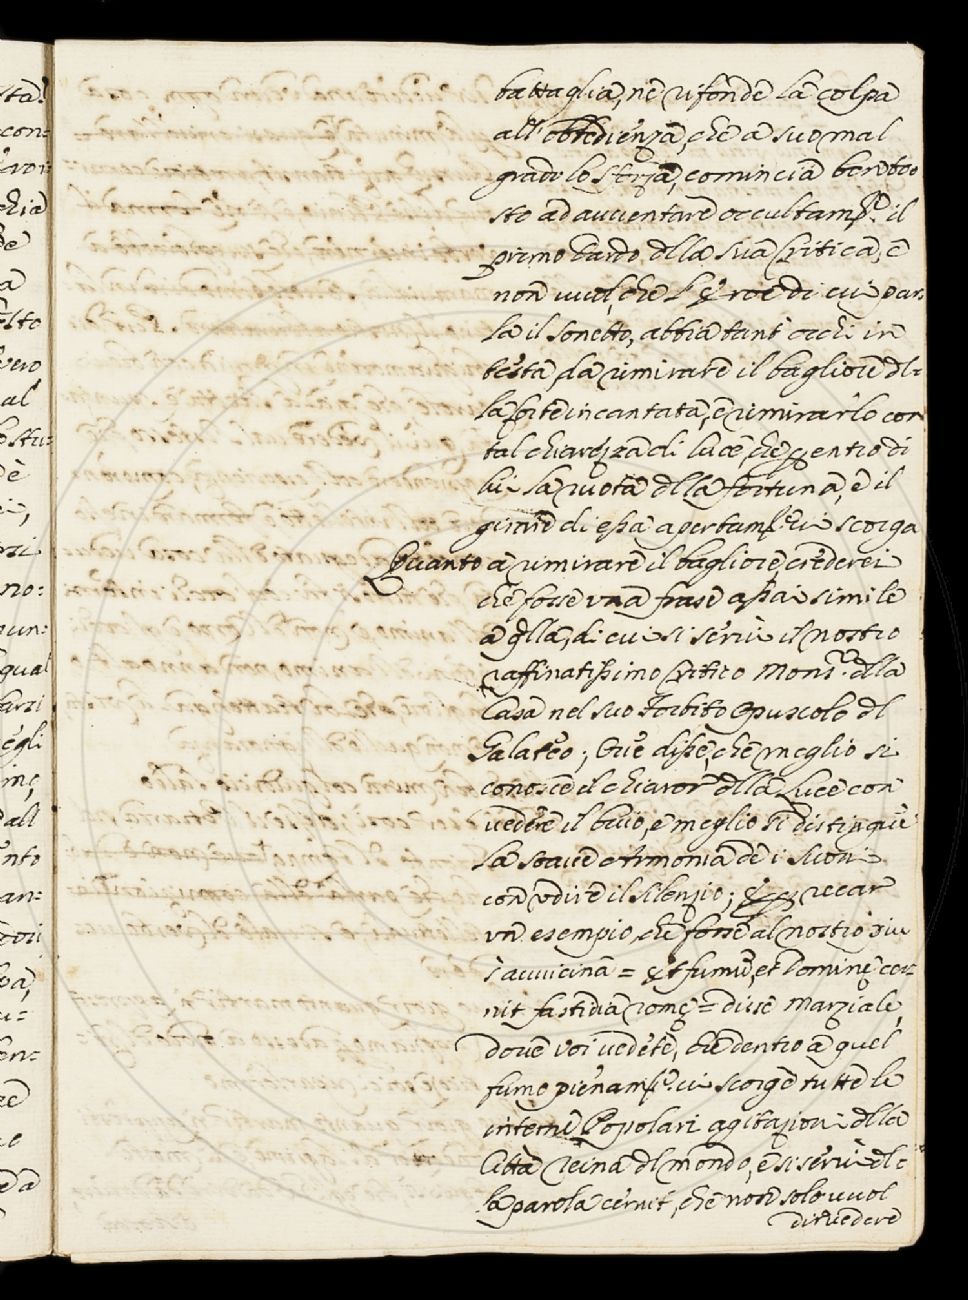 battaglia, nè rifonde la colpa
all' obbedienza, che a suo mal
grado lo sforza, comincia ben to=
sto ad avventare occultamte. il
primo dardo dlla sua Critica, e
non vuol, che l' Eroe di cui par
la il Sonetto, abbia tant' occhi in
testa da rimirare il bagliore dl=
la sorte incantata, e rimirarlo con
tal chiarezza di luce, che per entro di
lui la ruota dlla fortuna, e il
girare di essa apertamte. vi scorga
Quanto a rimirare il bagliore, crederei
che fosse una frase assai simile
a qlla, di cui si servì il nostro
raffinatissimo Critico Monsre. dlla
Casa nel suo forbito Opuscolo dl
Galateo; Ove disse, che meglio si
conosce il chiaror dlla Luce con
vedere il buio, e meglio si distingue
la soave Armonia de i suoni
con vdire il silenzio; E per recar
vn esempio, che forse al nostro più
s' avvicina = Et fumū, et Dominę cer=
nit fastidia romę = disse Marziale,
dove voi vedete, che dentro a quel
fumo pienamte. vi scorge tutte le
interne Popolari agitazioni dlla
Città reina dl mondo, e si servì dl=
la parola cernit, che non solo vuol
dir vedere
sta!
con=
al
è
no:
qual
egli
dall
ento
an=